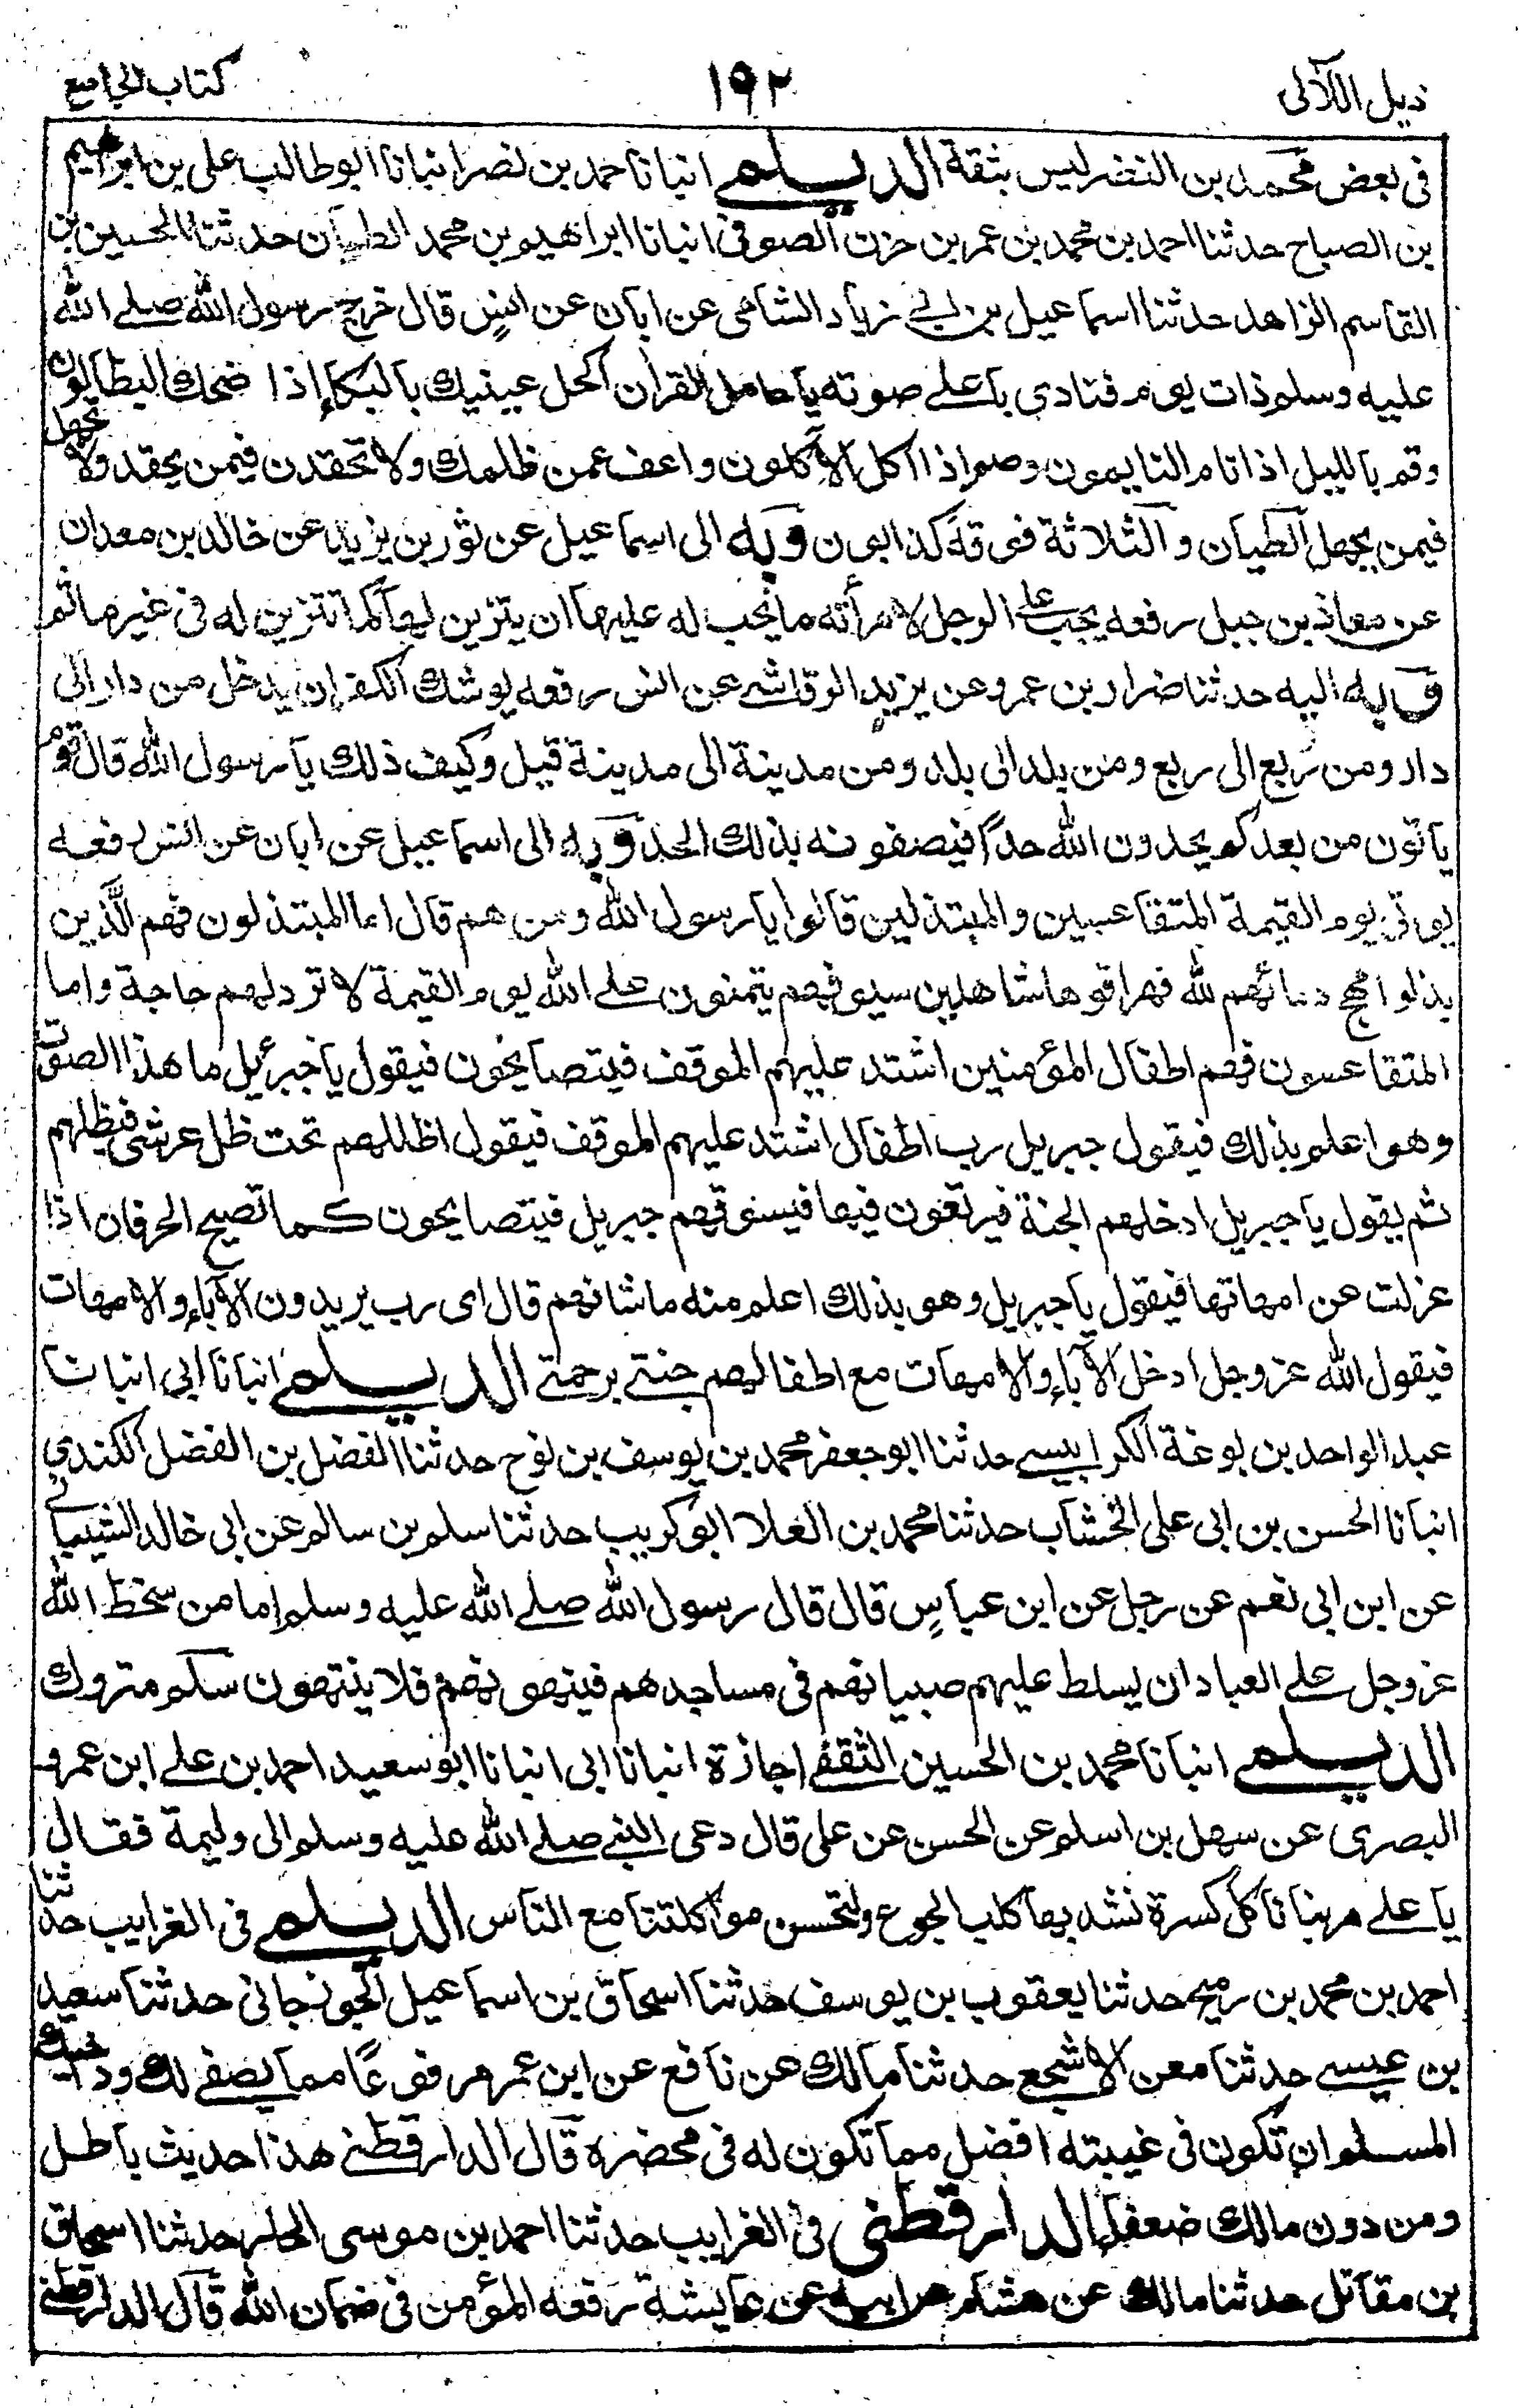 ذيل اللآلى ١٩٢ كتاب الجامع
فى بعض محمد بن النضر ليس بثقة الديلمے انبانا حمد بن نصر انبانا ابو طالب على بن ابراهيم
بن الصباح حدثنا احمد بن محمد بن عمر بن خرت الصوفى انبانا ابراهيم بن محمد الطيان حدثنا الحسين بن
القاسم الزاهد حدثنا اسماعيل بن ابے زياد الشامى عن ابان عن انس قال خرج رسول الله صلے الله
عليه وسلم ذات يوم فنادى باعلے صوته يا حامل القرآن اكحل عينيك بالبكاء اذا ضحك البطالون
وقم بالليل اذا نام النايمون وصم اذا اكل الآكلون واعف عمن ظلمك ولا تحقدن فيمن يحقد ولا تجهل
فيمن يجهل الطيان والثلاثة فوقه كذابون وبه الى اسماعيل عن ثور بن يزيد عن خالد بن معدان
عن معاذ بن جبل رفعه يجب علے الرجل لامرأته ما يجب له عليها ان يتزين لها كما تتزين له فى غير ماثم
وبه اليه حدثنا ضرار بن عمرو عن يزيد الرقاشے عن انس رفعه يوشك الكفر ان يدخل من دار الى
دار ومن ربع الى ربع ومن بلد الى بلد ومن مدينة الى مدينة قيل وكيف ذلك يا رسول الله قال قوم
ياتون من بعدكم يحدون الله حداً فيصفونه بذلك الحد وبه الى اسماعيل عن ابان عن انس رفعه
يوتى يوم القيمة المتقاعسين والمبتذلين قالوا يا رسول الله ومن هم قال اما المبتذلون فهم الذين
بذلوا مهج دمائهم لله فهراقوها شاهلين سيوفهم يتمنون علے الله يوم القيمة لا ترد لهم حاجة واما
المتقاعسون فهم اطفال المؤمنين اشتد عليهم الموقف فيتصايحون فيقول يا جبرئيل ما هذا الصوت
وهو اعلم بذلك فيقول جبريل رب اطفال اشتد عليهم الموقف فيقول اظللهم تحت ظل عرشى فيظلهم
ثم يقول يا جبريل ادخلهم الجنة فيرتعون فيها فيسوقهم جبريل فيتصايحون كما تصيح الخرفان اذا
عزلت عن امهاتها فيقول يا جبريل وهو بذلك اعلم منه ما شانهم قال اى رب يريدون الآباء والامهات
فيقول الله عز وجل ادخل الآباء والامهات مع اطفالهم جنتے برحمتے الديلمے انبانا ابى انبانا
عبد الواحد بن بوغة الكرابيسے حدثنا ابو جعفر محمد بن يوسف بن نوح حدثنا الفضل بن الفضل الكندى
انبانا الحسن بن ابى على الخشاب حدثنا محمد بن العلا ابو كريب حدثنا سلم بن سالم عن ابى خالد الشيبانے
عن ابن ابى نعم عن رجل عن ابن عباس قال قال رسول الله صلے الله عليه وسلم اما من سخط الله
عز وجل علے العباد ان يسلط عليهم صبيانهم فى مساجدهم فينهونهم فلا ينتهون سلم متروك
الديلمے انبانا محمد بن الحسين الثقفے اجازة انبانا ابى انبانا ابو سعيد احمد بن علے ابن عمرو
البصرى عن سهل بن اسلم عن الحسن عن على قال دعى النبے صلے الله عليه وسلم الى وليمة فقال
يا علے مر بنا ناكل كسرة نشد بها كلب الجوع ولتحسن مواكلتنا مع الناس الديلمے فى الغرايب حدثنا
احمد بن محمد بن رميح حدثنا يعقوب بن يوسف حدثنا اسحاق بن اسماعيل الجوزجانى حدثنا سعيد
بن عيسے حدثنا معن الاشجع حدثنا مالك عن نافع عن ابن عمر مرفوعًا مما يصفے لك ود اخيك
المسلم ان تكون فى غيبته افضل مما تكون له فى محضره قال الدارقطنے هذا حديث باطل
ومن دون مالك ضعفاء الدارقطنى فى الغرايب حدثنا احمد بن موسى حدثنا اسحاق
بن مقاتل حدثنا مالك عن هشام عن ابيه عن عايشة رفعه المؤمن فى ضمان الله قال الدارقطنے